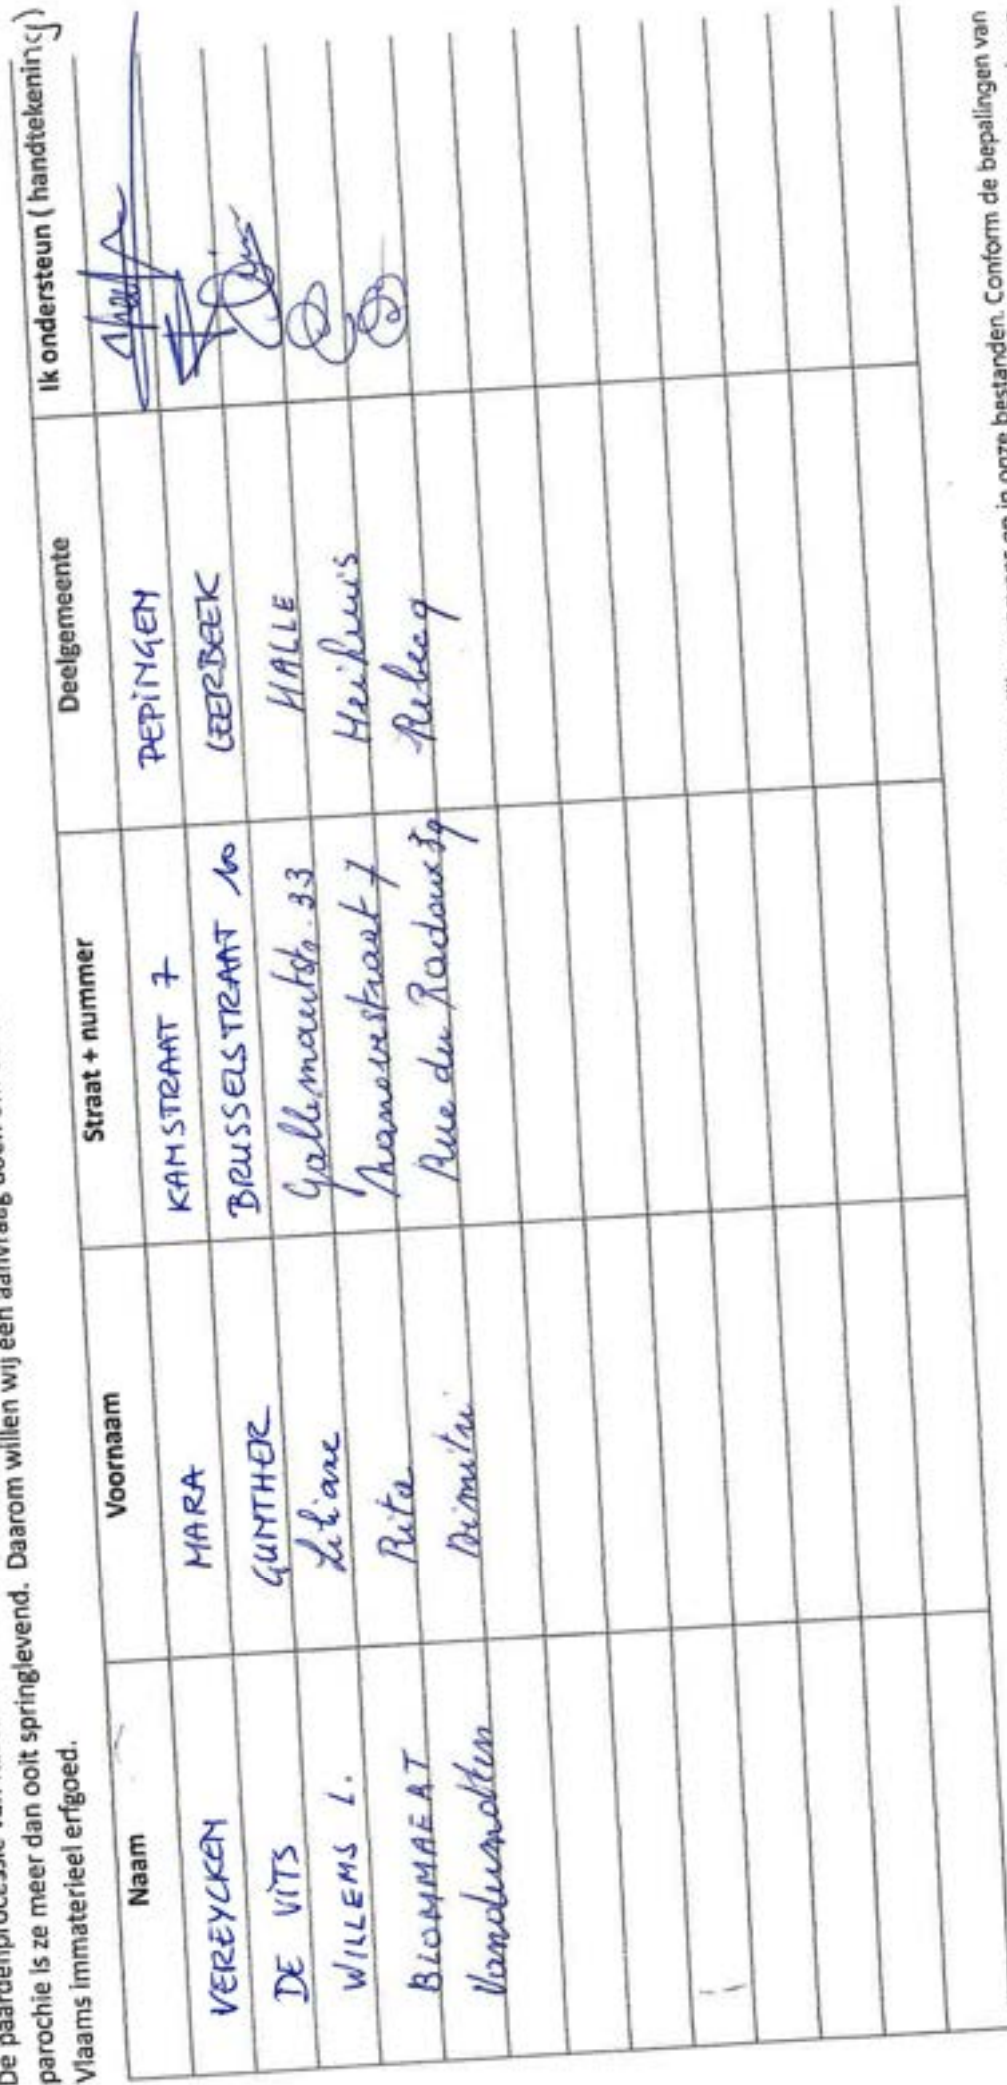 De paardenprocessie van
parochie is ze meer dan ooit springlevend. Daarom willen wij een aanvraag
Vlaams immaterieel erfgoed.
Naam Voornaam Straat + nummer Deelgemeente Ik ondersteun ( handtekening)
VEREYCKEN MARA KAMSTRAAT 7 PEPINGEN
DE VITS GUNTHER BRUSSELSTRAAT LEERBEEK
WILLEMS L. Liliane 33 HALLE
BLOMMAERT Rita 7
Dimitri Rue du Rebecq
en in onze bestanden. Conform de bepalingen van